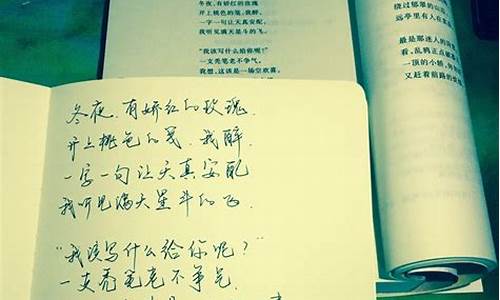 冬夜,有娇红的玫瑰
开上桃色的笺,我醉,
一字一句让天真安配,
我听见满天星斗的飞。
“我该写什么给你呢?”
一支秃笔老不争气,
我想,这该是一场空欢喜,
绕过郁翠的山
远亭里有人在
最是那迷人的
看,乱鸦正点
一顶的小轿,
又赶着前路的
冬夜,有娇红的玫瑰
开上桃色的笺,我醉,
一字一句让天真安配
我听见满天星斗的飞.
“我该写什么给你呢?”
一支秃笔老不争气.